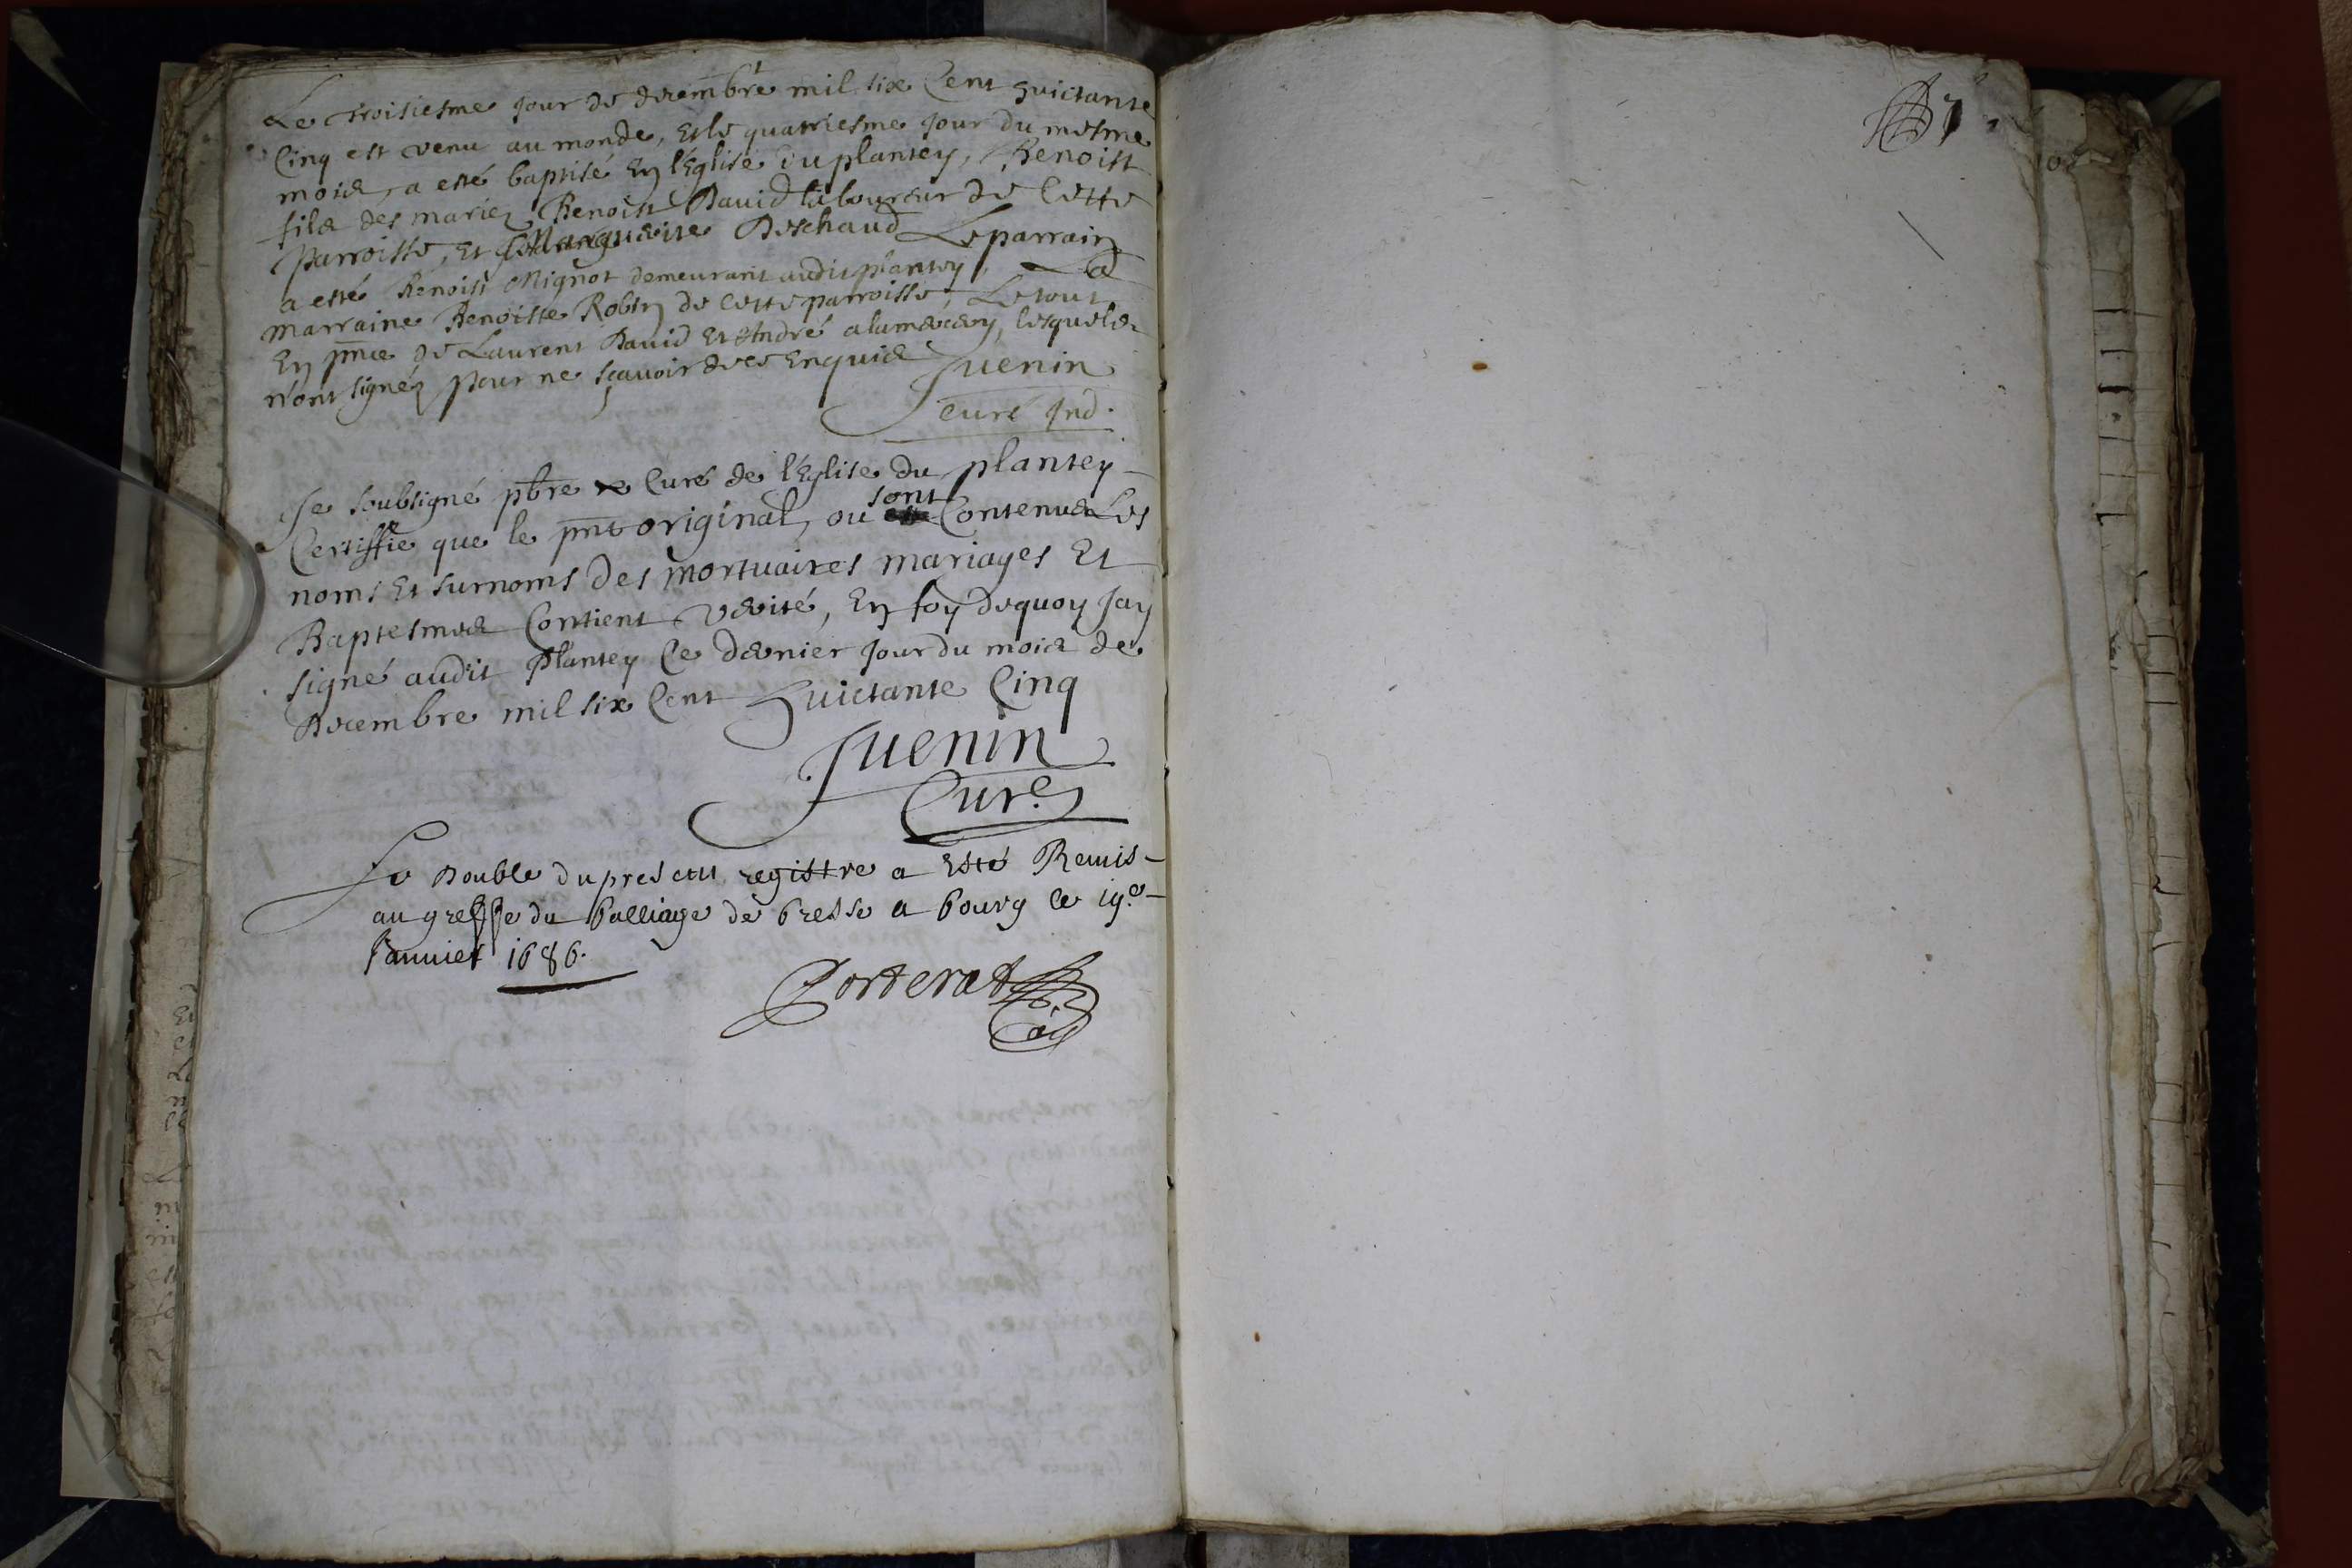 Le troisiesme jour de decembre mil six Cent huictante
Cinq est venu au monde, et le quatriesme jour du mesme
mois, a esté baptisé En l'Eglise du plantey, Benoist
fils des mariez Benoist David laboureur de Cette
parroisse, et Marguerite Deschaud Le parrain
a esté Benoist Mignot demeurant audit plantey, La
marraine Benoiste Robin de Cette parroisse, Le tout
En pnce de Laurent David Et André alamercery, lesquels
n'ont signéz pour ne sçavoir de ce Enquis
Juenin
curé Ind.
Je soubsigné pbre Curé de l'Eglise du plantey
Certiffie que le pnt original, ou sont Contenus Les
noms Et surnoms des mortuaires mariages Et
Baptesmes Contient verité, En foy dequoy Jay
signé audit plantey Ce dernier jour du mois de
Decembre mil six Cent huictante Cinq
Juenin
Curé
Le Double du present registre a Esté Remis
au greffe du balliage de bresse a bourg le 19e
Janvier 1686.
Porterat